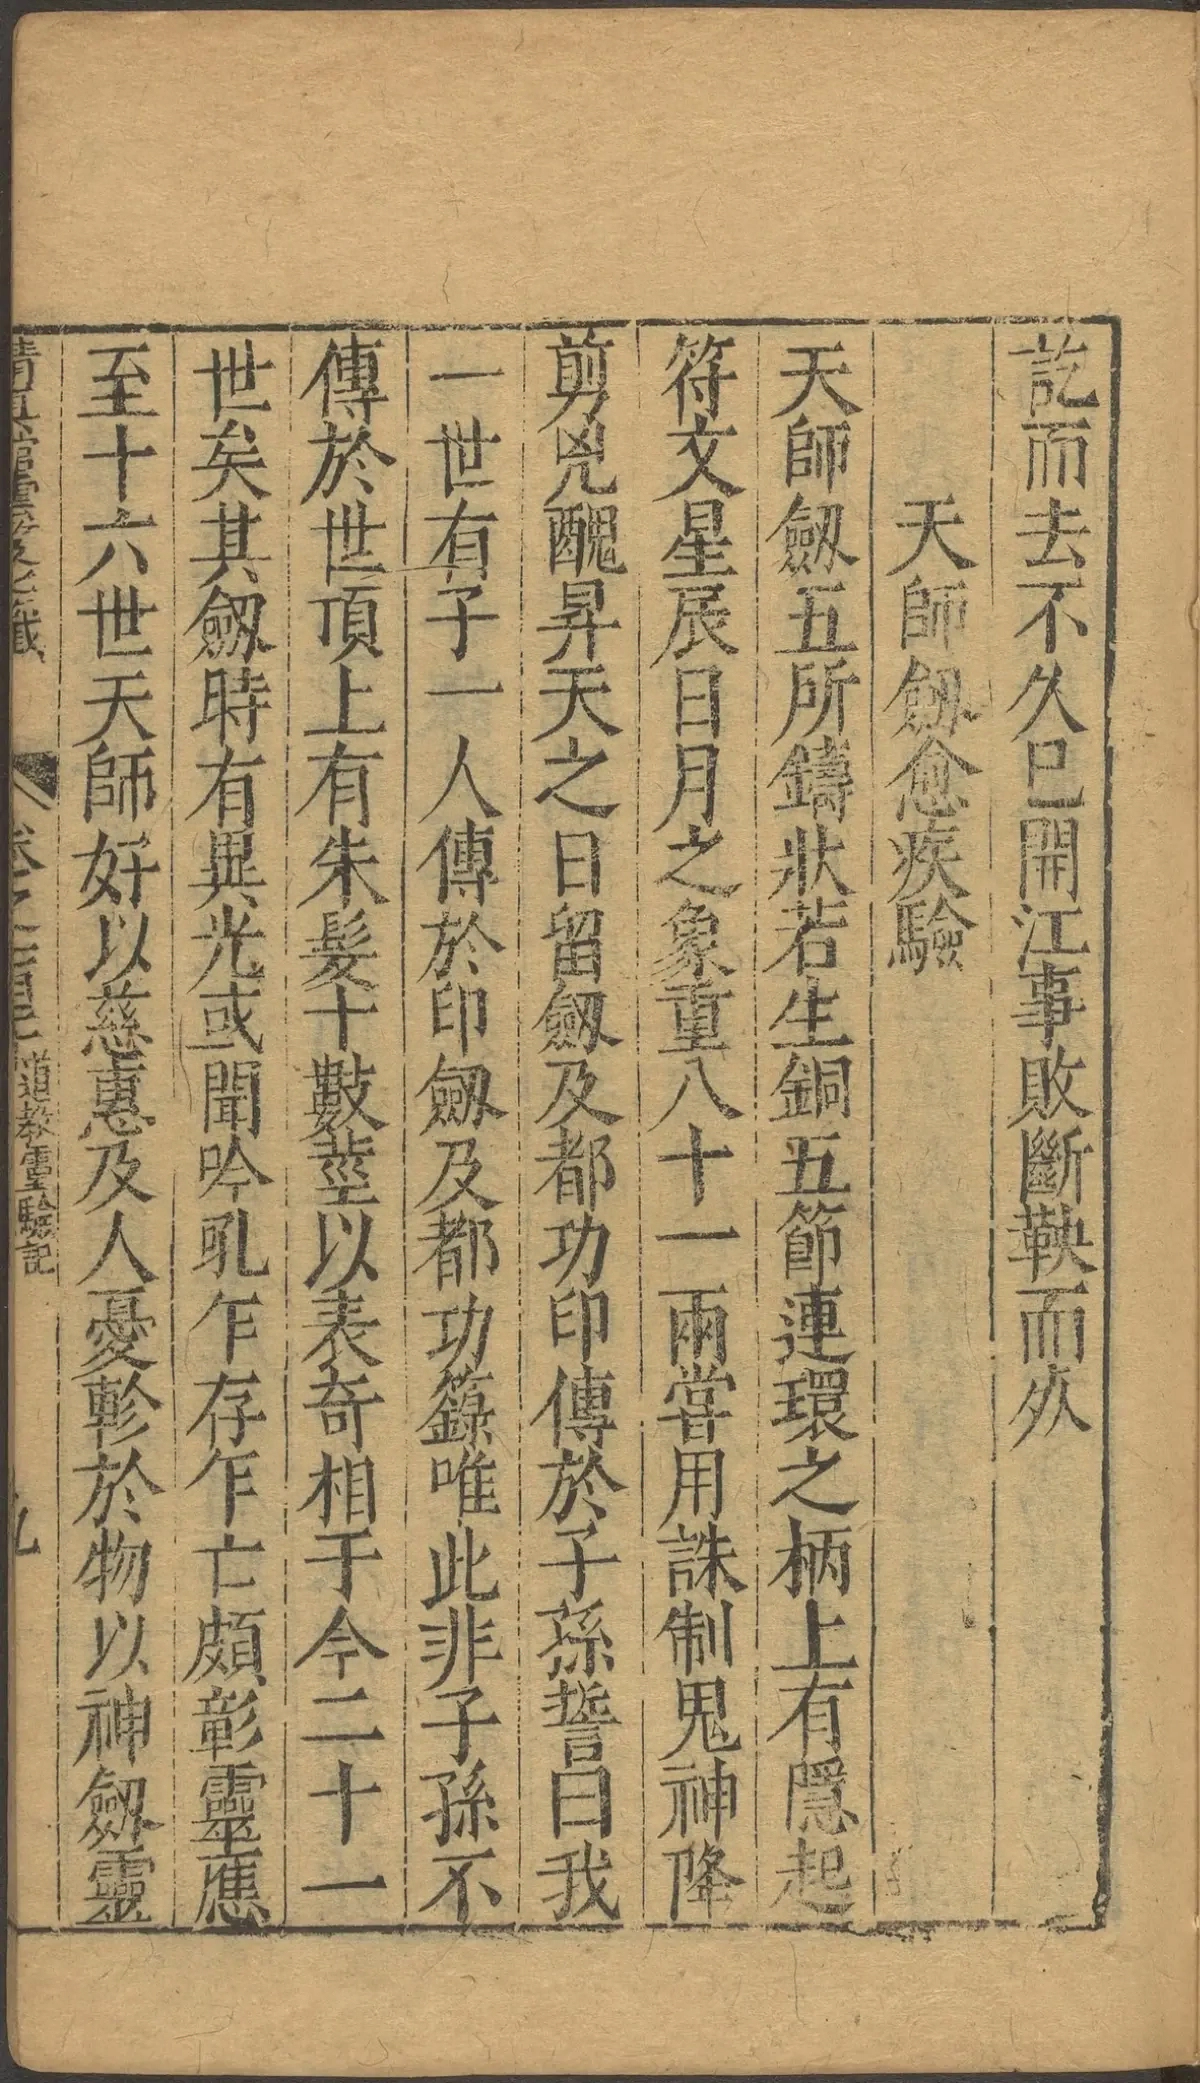 訖而去不久已開江事敗斷鞅而㱙
天師劔愈疾驗
天師劔五所鑄狀若生銅五節連環之柄上有隱起
符文星辰日月之象重八十一兩嘗用誅制鬼神降
剪兇醜昇天之日留劔及都功印傳於子孫誓曰我
一世有子一人傳於印劔及都功籙唯此非子孫不
傳於世頂上有朱髮十數莖以表奇相于今二十一
世矣其劔時有異光或聞吟吼乍存乍亡頗彰靈應
至十六世天師好以慈惠及人憂軫於物以神劔靈
道教靈驗記